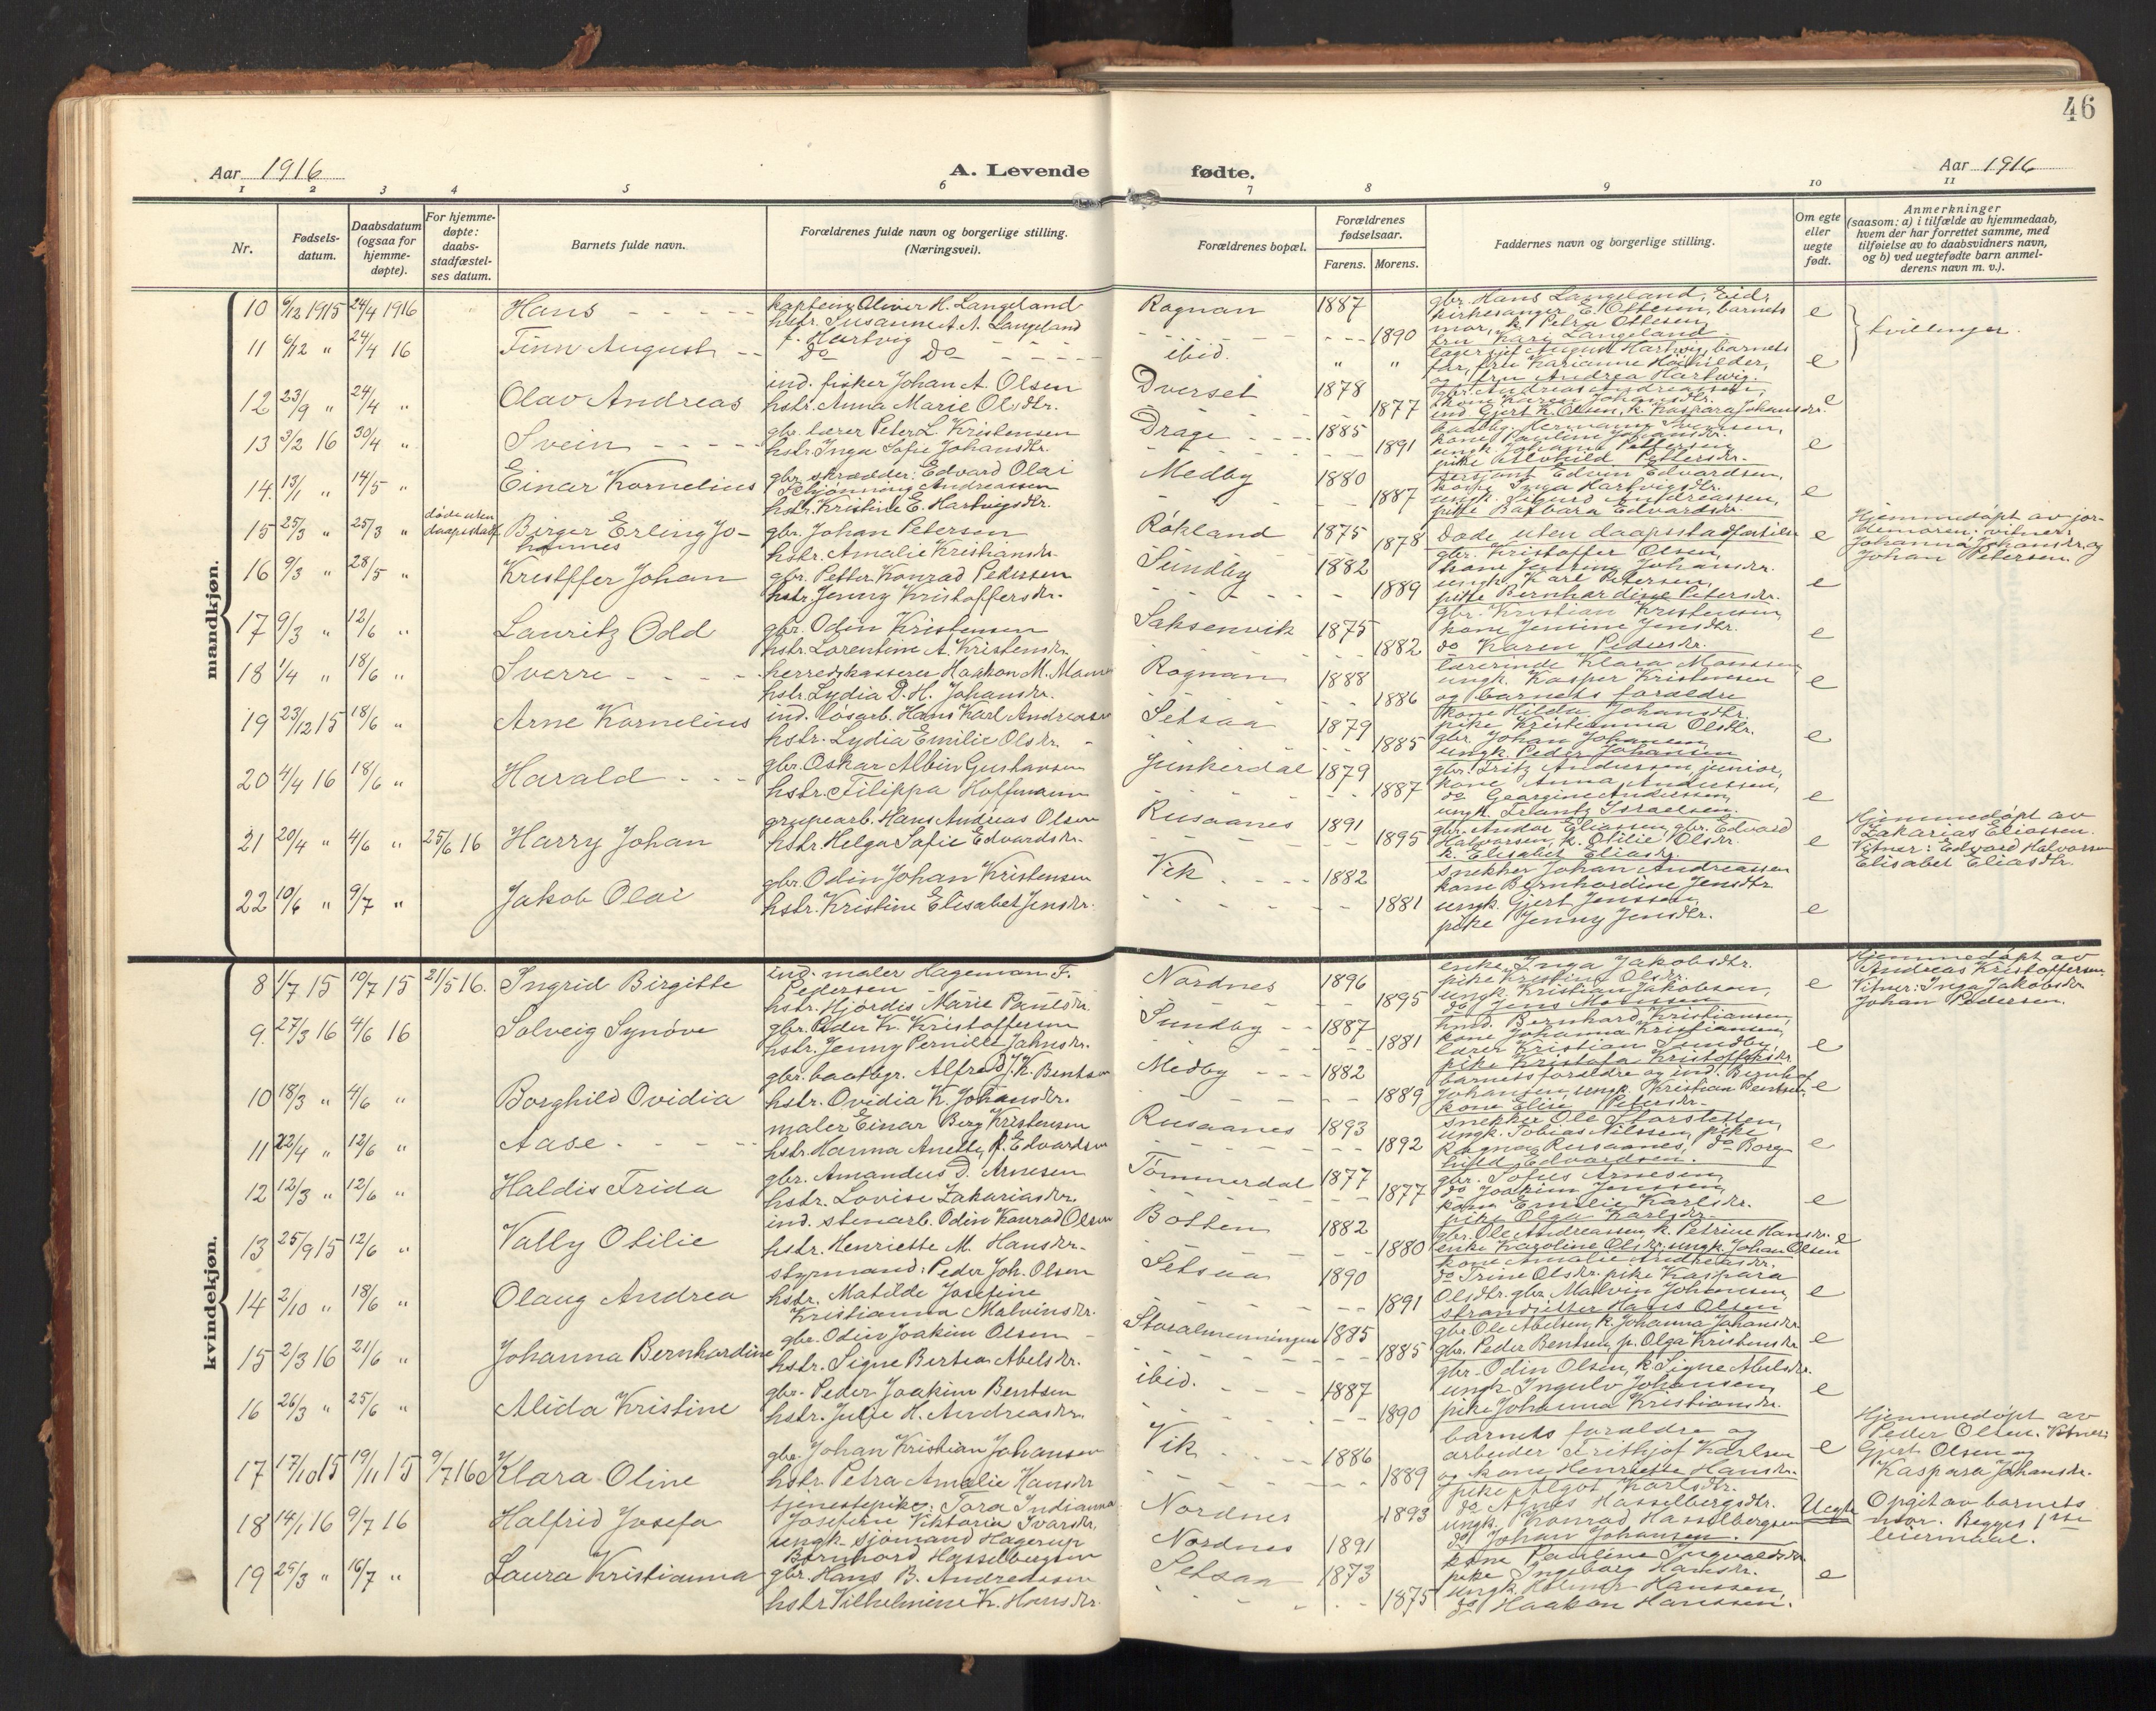 46
Aar 1916
A. Levende
fødte.
Aar 1916
1 2 3 4 5 6 7 8 9 10 11
Nr.
Fødsels-
datum.
Daabsdatum
(ogsaa for
hjemme-
døpte).
For hjemme-
døpte:
daabs-
stadfæstel-
ses datum.
Barnets fulde navn.
Forældrenes fulde navn og borgerlige stilling.
(Næringsvei).
Forældrenes bopæl.
Forældrenes
fødselsaar.
Farens. Morens.
Faddernes navn og borgerlige stilling.
Om egte
eller
uegte
født.
Anmerkninger
(saasom: a) i tilfælde av hjemmedaab,
hvem der har forrettet samme, med
tilføielse av to daabsvidners navn,
og b) ved uegtefødte barn anmel-
derens navn m. v.).
mandkjøn.
10 6/12 1915 24/4 1916 Hans
kaptein Oliver H. Langeland
hstr. Susanne A. A. Langeland
f. Hartvig
Rognan 1887 1890
gbr. Hans Langeland, Eid,
kirkesanger E. Ottesen, barnets
mor, k. Petra Ottesen,
fru Kary Langeland.
e
tvillinger.
11 6/12 " 24/4 16 Finn August
Do Do
ibid. " "
lagersjef August Hartvig, barnets
far, fru Karianne
og fru Andrea Hartvig.
e
12 23/9 " 24/4 " Olav Andreas
ind. fisker Johan A. Olsen
hstr. Anna Marie Olsdtr.
Dverset 1878 1877
gbr. Andreas Andreassen,
kone Karen Johansdtr.
ind. Gjert K. Olsen, k. Kaspara Johansdr.
e
13 3/2 16 30/4 " Svein
gbr. lærer Peter L. Kristensen
hstr. Inga Sofie Johansdtr.
Drage 1885 1891
baatbg. Hermann Svendsen,
kone Pauline Johansdtr.
ungk. Johann Pettersen,
pike Alvhild Pettersdr.
e
14. 13/1 " 14/5 " Einar Kornelius
gbr. skrædder: Edvard Olai
Schjønning Andreassen
hstr. Kristine E. Hartvigsdtr.
Medby 1880 1887
sersjant Edvin Edvardsen,
kone Inga Hartvigsdtr.
ungk. Sigurd Andreassen,
pike Barbara Edvardsdr.
e
15 25/3 " 25/3 "
døde uten
daapsstadf.
Birger Erling Jo-
hannes
gbr. Johan Petersen
hstr. Amalie Kristiansdr.
Røkland 1875 1878
Døde uten daapsstadfæstelse
e
Hjemmedøpt av jor-
demoren; vitner:
Johanna Johansdr. og
Johan Petersen.
16 9/3 " 28/5 " Kristffer Johan
gbr. Petter Konrad Pedersen
hstr. Jenny Kristoffersdr.
Sundby 1882 1889
gbr. Kristoffer Olsen,
kone Jensine Johansdr.
ungk. Karl Petersen,
pike Bernhardine Petersdr.
e
17 9/3 " 12/6 " Lauritz Odd
gbr. Odin Kristensen
hstr. Lorentine A. Kristensdr.
Saksenvik 1875 1882
gbr. Kristian Kristensen,
kone Jensine Jensdtr.
do Karen Pedersdr.
e
18 1/4 " 18/6 " Sverre
herredskasserer Haakon M.
hstr. Lydia D. H. Johansdr.
Rognan 1888 1886
lærerinde Klara Monssen,
ungk. Kasper Kristensen
og barnets forældre
e
19 23/12 15 18/6 " Arne Kornelius
ind. løsarb. Hans Karl Andreassen
hstr. Lydia Emilie Olsdr.
Setsaa 1879 1885
kone Hilda Johansdtr.
pike Kristianna Olsdtr.
gbr. Johan Johansen,
ungk. Peder Johansen
e
20 4/4 16 18/6 " Harald
gbr. Oskar Albin Gustavsen
hstr. Filippa Hoffmann
Junkerdal 1879 1887
gbr. Fritz Andersen, junior,
kone Anna Andersen,
do Georgine Andersen,
ungk. Frantz Israelsen.
e
21 20/4 " 4/6 " 25/6 16 Harry Johan
grupearb. Hans Andreas Olsen
hstr. Helga Sofie Edvardsdr.
Rusaanes 1891 1895
gbr. Andor Eliassen, gbr. Edvard
Halvorsen, k. Otilie Olsdr.
k. Elisabet Eliasdr.
e
Hjemmedøpt av
Zakarias Eliassen.
Vitner: Edvard Halvorsen
Elisabet Eliasdtr.
22 10/6 " 9/7 " Jakob Olai
gbr. Odin Johan Kristensen
hstr. Kristine Elisabet Jensdr.
Vik 1882 1881
snekker Johan Andreassen
kone Bernhardine Jensdtr
ungk. Gjert Jenssen,
pike Jenny Jensdtr.
e
kvindekjøn.
8 1/7 15 10/7 15 21/5 16. Ingrid Birgitte
ind. maler Hageman F.
Pedersen
hstr. Hjørdis Marie Paulsdr.
Nordnes 1896 1895
enke Inga Jakobsdtr.
pike Kristine Olsdr.
ungk. Kristian Jakobsen,
do Jens Monssen
e
Hjemmedøpt av
Andreas Kristoffersen.
Vitner: Inga Jakobsdr
Johan Pedersen.
9. 27/3 16 4/6 16 Solveig Synøve
gbr. Peder K. Kristoffersen
hstr. Jenny Pernille Jahnsdr.
Sundby 1887 1881
hmd. Bernhard Kristiansen,
kone Johanna Kristiansen,
lærer Kristian Sundby,
pike Kristofa Kristoffersdr.
e
10 18/3 " 4/6 " Borghild Ovidia
gbr. baatbgr. Alfred J. K. Bentsen
hstr. Ovidia K. Johansdr.
Medby 1882 1889
barnets forældre og ind. Bernhof
Johansen, ungk. Kristian Bentsen,
kone Elise Petersdr.
e
11 22/4 " 12/6 " Aase
maler Einar Berg Kristensen
hstr. Hanna Anette R. Edvardsen
Rusaanes 1893 1892
snekker Ole Storstetten,
ungk. Tobias Nilssen, pike
Ragna Rusaanes, do Borg-
hild Edvardsen.
e
12 12/3 " 12/6 " Haldis Frida
gbr. Amandus D. Arnesen
hstr. Lovise Zakariasdr.
Tømmerdal 1877 1877
gbr. Sofus Arnesen,
do Joakim Jenssen,
kone Emilie Karlsdr.
pike Olga Karlsdr.
e
13 25/9 15 12/6 " Vally Otilie
ind. stenarb. Odin Konrad Olsen
hstr. Henriette M. Hansdr.
Botten 1882 1880
gbr. Ole Andreassen, k. Petrine Hansdr.
enke Karoline Olsdr. ungk. Johan Olsen
kone Amalie Andreasdr.
e
14 2/10 " 18/6 " Olaug Andrea
styrmand: Peder Joh. Olsen
hstr. Matilde Josefine
Kristianna Malvinsdr.
Setsaa 1890 1891
do Trine Olsdr. pike Kaspara
Olsdtr. gbr. Malvin Johansen,
strandsitter Hans Olsen
e
15 2/3 16 21/6 " Johanna Bernhardine
gbr. Odin Joakim Olsen
hstr. Signe Bertea Abelsdr.
Storalmenningen 1885 1885
gbr. Ole Abelsen, k. Johanna Johansdr.
gbr. Peder Bentsen, p. Olga Kristensdr
e
16 26/3 " 25/6 " Alida Kristine
gbr. Peder Joakim Bentsen
hstr. Julie H. Andreasdr.
ibid. 1887 1890
gbr. Odin Olsen, k. Signe Abelsdr.
ungk. Ingulv Johansen,
pike Johanna Kristiansdr.
e
17 17/10 15 19/11 15 9/7 16 Klara Oline
gbr. Johan Kristian Johansen
hstr. Petra Amalie Hansdr
Vik 1886 1889
barnets forældre og
arbeider Frithjof Karlsen
og kone Henriette Hansdr.
e
Hjemmedøpt av
Peder Olsen. Vitner:
Gjert Olsen og
Kaspara Johansdr.
18 14/1 16 9/7 16 Halfrid Josefa
tjenestepike: Tora Indianna
Josefine Viktoria Ivarsdr,
ungk. sjømand Hagerup
Bernhard Hasselbergsen
Nordnes 1893
Nordnes 1891
pike Algot Karlsdr.
do Agnes Hasselbergsdtr.
ungk. Konrad Hasselbergsen
do Johan Johansen.
Uegte
Opgit av barnets
mor. Begges 1ste
leiermaal.
19 25/3 " 16/7 " Laura Kristianna
gbr. Hans B. Andreassen
hstr. Vilhelmine K. Hansdr.
Setsaa 1873 1875
kone Pauline Ingvaldsdr
pike Ingeborg Hansdr.
ungk. Hanssen,
do Haakon Hanssen.
e